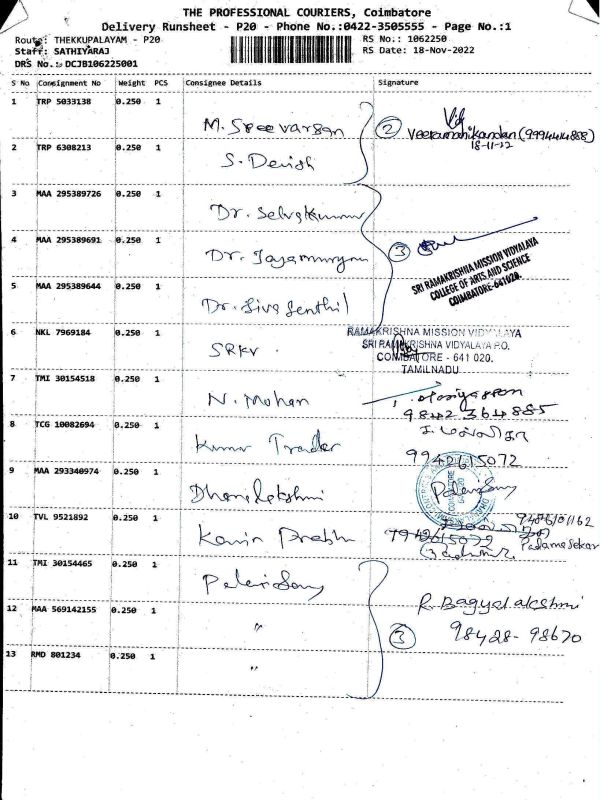 THE PROFESSIONAL COURIERS, Coimbatore
Delivery Runsheet - P20 - Phone No.:0422-3505555 - Page No.:1
Route: THEKKUPALAYAM - P20
RS No.: 1062250
Staff: SATHIYARAJ
RS Date: 18-Nov-2022
DRS No.: DCJB106225001
S No Consignment No Weight PCS Consignee Details Signature
1 TRP 5033138 0.250 1 M. Sreevarsan
2 Veeramanikandan (9994414888)
18-11-22
2 TRP 6308213 0.250 1 S. Devish
3 MAA 295389726 0.250 1 Dr. Selvakumar
4 MAA 295389691 0.250 1 Dr. Jayamurugan
3
SRI RAMAKRISHNA MISSION VIDYALAYA
COLLEGE OF ARTS AND SCIENCE
COIMBATORE-641020.
5 MAA 295389644 0.250 1 Dr. Siva Senthil
6 NKL 7969184 0.250 1 SRKV
RAMAKRISHNA MISSION VIDYALAYA
SRI RAMAKRISHNA VIDYALAYA P.O.
COIMBATORE - 641 020.
TAMILNADU
7 TMI 30154518 0.250 1 N. Mohan
9842 364885
8 TCG 10082694 0.250 1 Kumar Trader
9942615072
9 MAA 293340974 0.250 1 Dhanalakshmi
Palanisamy
10 TVL 9521892 0.250 1 Kavin Prabhu
9486101162
7942615072
Padamasekar
11 TMI 30154465 0.250 1 Palanisamy
R. Bagyalakshmi
12 MAA 569142155 0.250 1 "
3 98428-98670
13 RMD 801234 0.250 1 "